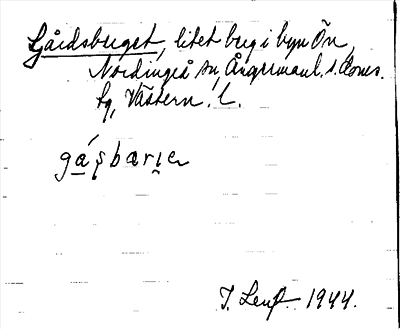 Gårdsberget, litet berg i byn Ön,
Nordingrå sn, Ångermanl. s. doms.
fg, Västern. l.
gáʂbærɩe
J. Lenf 1944.